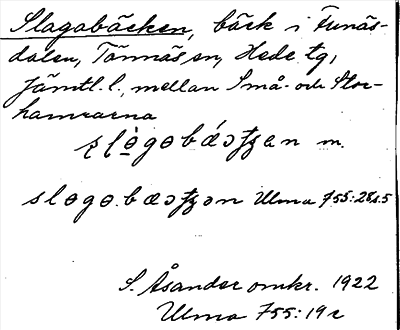 Slagabäcken, bäck i Funäs-
dalen, Tännäs sn, Hede tg,
Jämtl. l., mellan Små- och Stor-
hamrarna
m.
Ulma 755:28 s. 5
S. Åsander omkr. 1922
Ulma 755:19 c